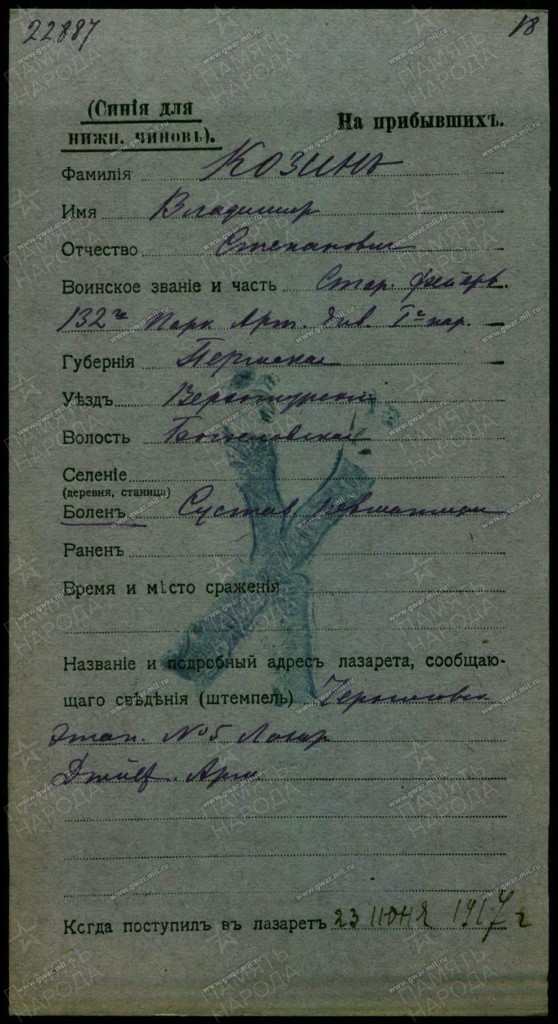 22887
18
(Синія для
нижн. чиновъ).
На прибывшихъ.
Фамилія Козинъ
Имя Владимир
Отчество Степанович
Воинское званіе и часть Стар. фейерв.
132ой Парк Арт. див. 1й пар.
Губернія Пермская
Уѣздъ Верхотурский
Волость Богословская
Селеніе
(деревня, станица)
Боленъ Сустав. ревматизм
Раненъ
Время и мѣсто сраженія
Названіе и подробный адресъ лазарета, сообщаю-
щаго свѣдѣнія (штемпель)
Этап. №5 Лазар
Арм
Когда поступилъ въ лазаретъ 23 июня 1917 г
ПАМЯТЬ НАРОДА
www.gwar.mil.ru